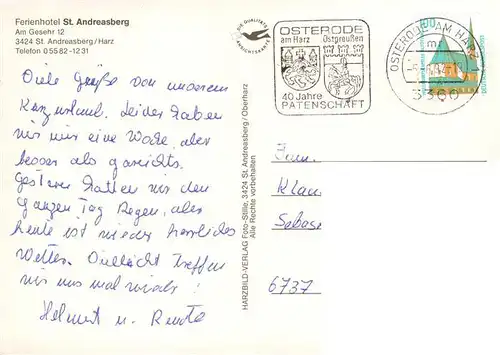 Ferienhotel St. Andreasberg
Am Gesehr 12
3424 St. Andreasberg/Harz
Telefon 0 55 82-12 31
Viele Grüße von unserem
Kurzurlaub. Leider haben
wir nur eine Woche, aber
besser als garnichts.
Gestern hatten wir den
ganzen Tag Regen, aber
heute ist wieder herrliches
Wetter. Vielleicht treffen
wir uns mal wieder!
Helmut u.
HARZBILD-VERLAG Foto-Stille, 3424 St. Andreasberg/Oberharz
Alle Rechte vorbehalten
DIE QUALITÄTS
ANSICHTSKARTE
OSTERODE
am Harz Ostpreußen
40 Jahre
PATENSCHAFT
OSTERODE AM HARZ 1
3360
Fam.
Klaus
6737